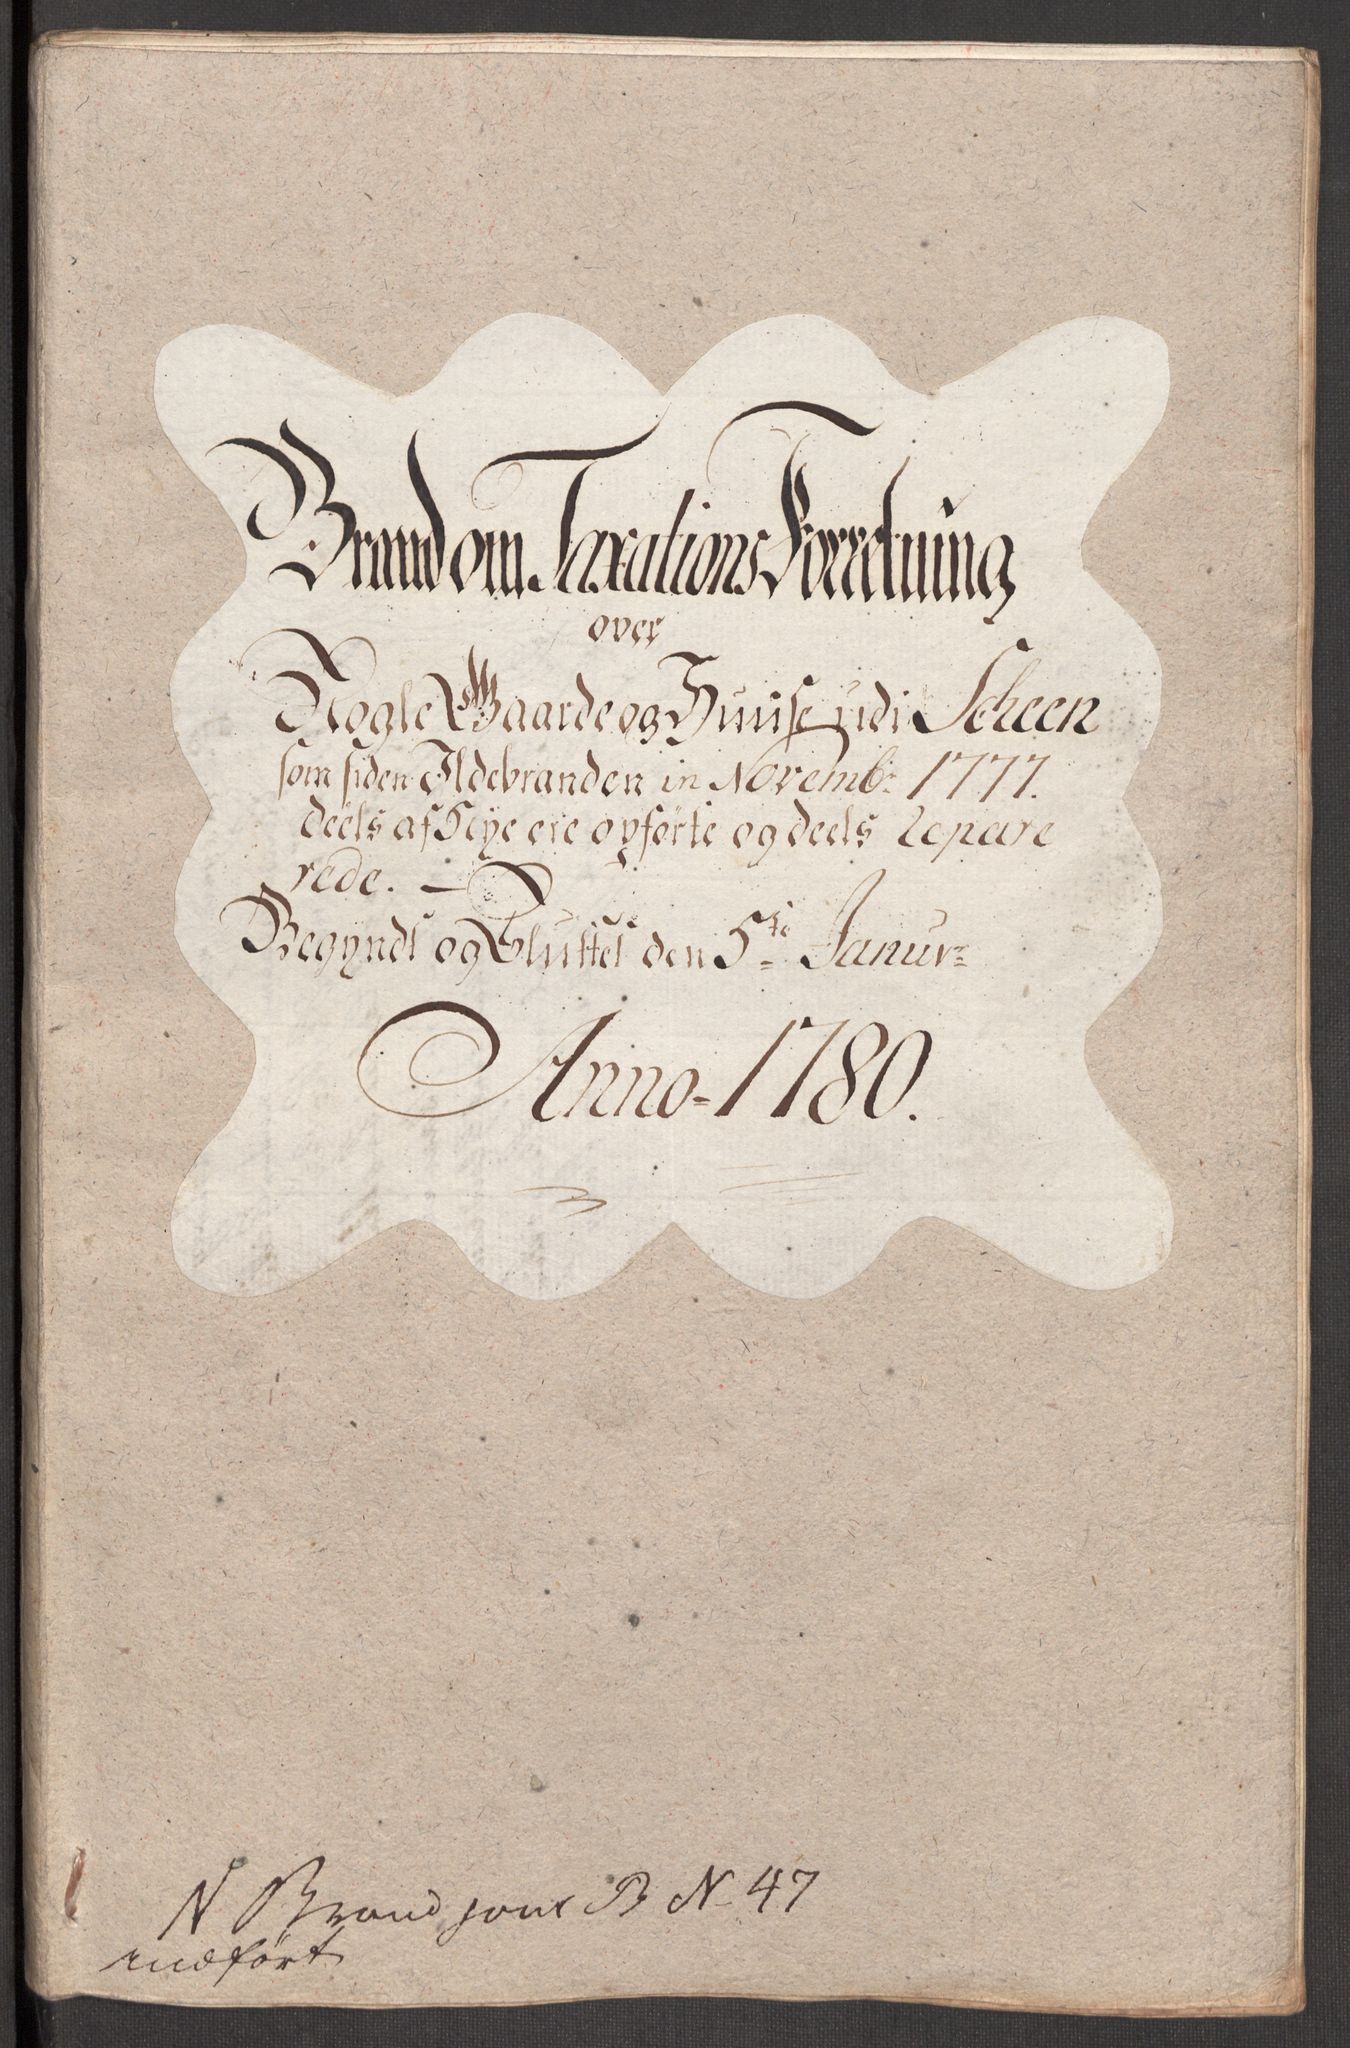 Brand om Taxations Forretning
over
Nogle Gaarde og Huuse udi Scheen
som siden Ildebranden in Novembr: 1777.
deels af Nye ere opførte og deels repare
rede. —
Begyndt og Sluttet den 5te Janur:
Anno 1780.
N Brand jour B No 47
indført